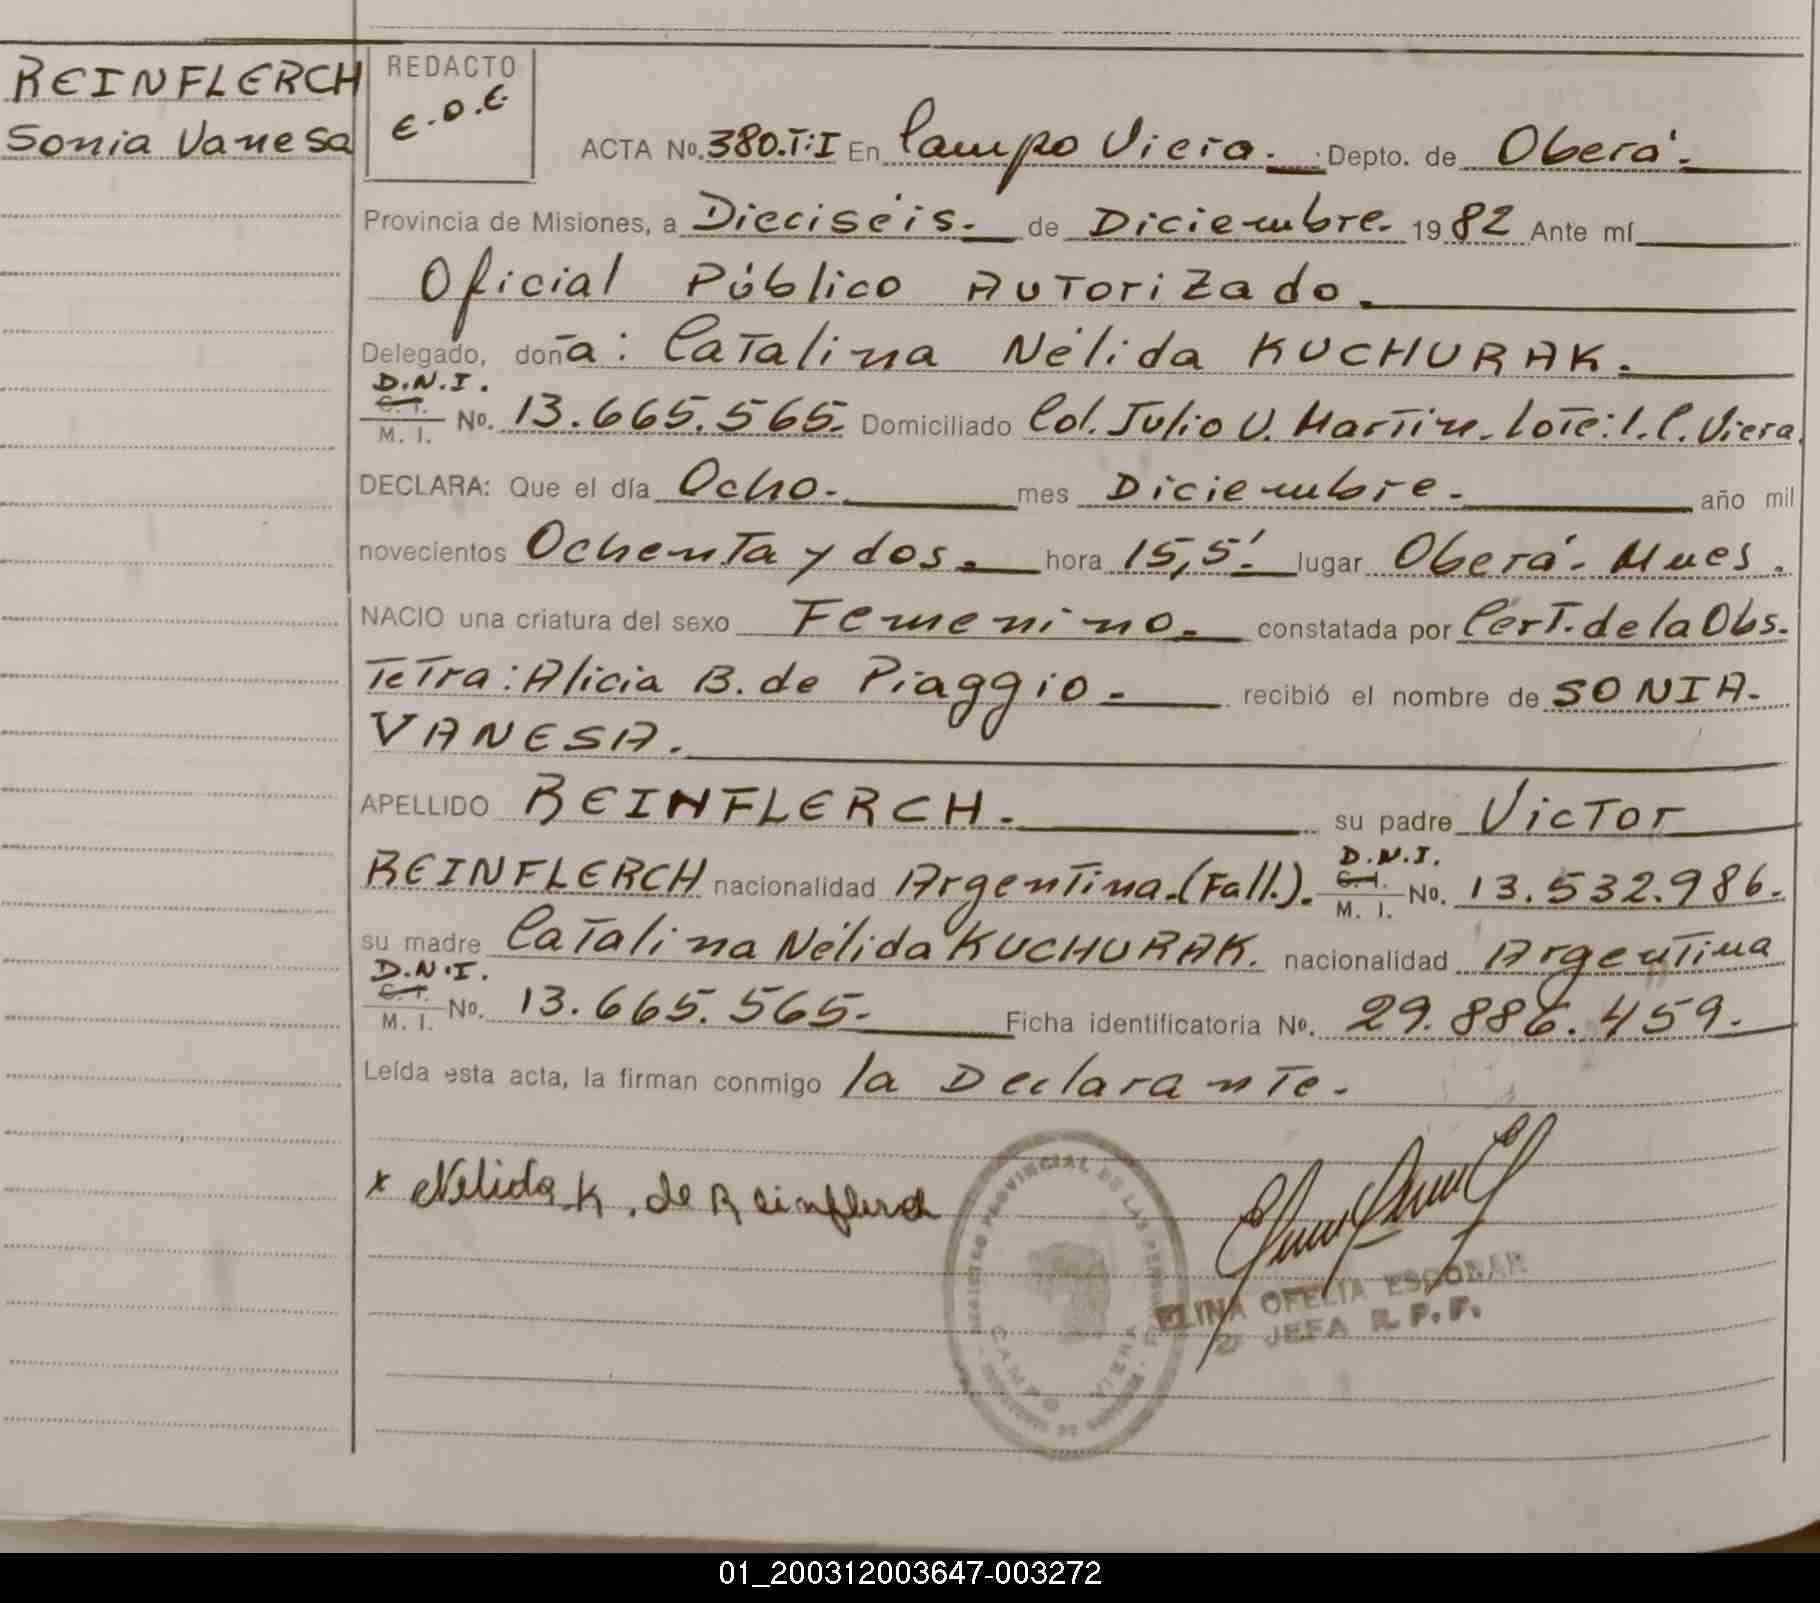 REINFLERCH
Sonia Vanesa
REDACTO
E.O.E.
ACTA No. 380.T:I En Campo Viera. Depto. de Oberá.
Provincia de Misiones, a Dieciséis. de Diciembre. 1982 Ante mí
Oficial Público Autorizado.
Delegado, doña: Catalina Nélida KUCHURAK.
D.N.I.
C. I.
M. I. No. 13.665.565. Domiciliado Col. Julio U. Martin. Lote: 1. C. Viera.
DECLARA: Que el día Ocho. mes Diciembre. año mil
novecientos Ochenta y dos. hora 15,5' lugar Oberá. Mnes.
NACIO una criatura del sexo Femenino. constatada por Cert. de la Obs.
Tetra: Alicia B. de Piaggio. recibió el nombre de SONIA.
VANESA.
APELLIDO REINFLERCH. su padre Victor
REINFLERCH nacionalidad Argentina.(Fall.). D.N.I. C. I. M. I. No. 13.532.986.
su madre Catalina Nélida KUCHURAK. nacionalidad Argentina
D.N.I.
C. I.
M. I. No. 13.665.565. Ficha identificatoria No. 29.886.459.
Leída esta acta, la firman conmigo la Declarante.
x Nelida K. de Reinflerch
REGISTRO PROVINCIAL DE LAS PERSONAS
CAMPO VIERA
ELINA OFELIA ESCOBAR
JEFA R.P.P.
01_200312003647-003272